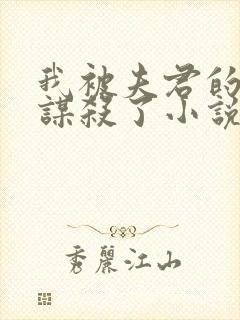 我被夫君的
謀殺了小說
秀麗江山